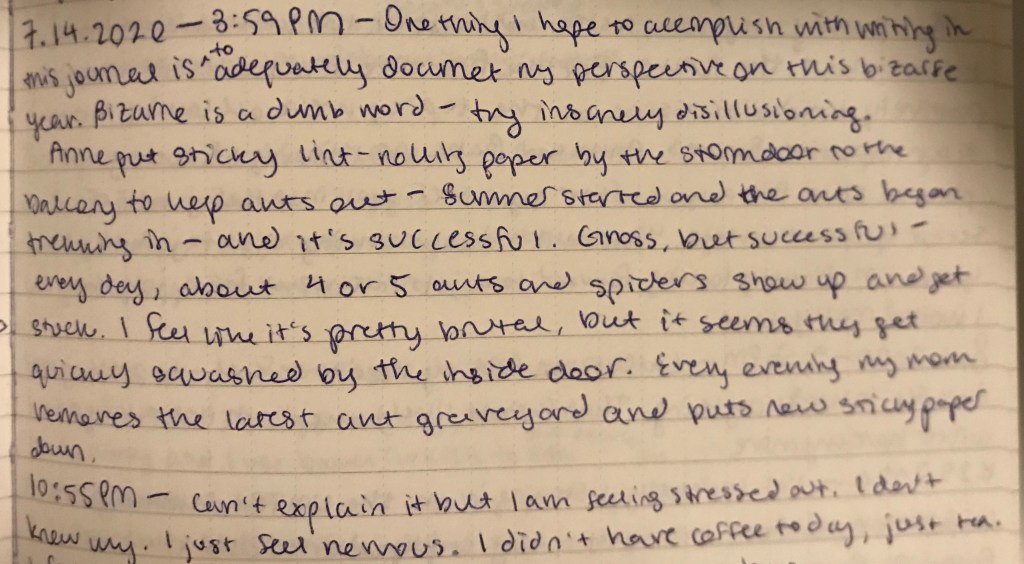 7.14.2020 — 3:59 PM — One thing I hope to accomplish with writing in
this journal is ^to adequately documet my perspective on this bizarre
year. Bizarre is a dumb word — try insanely disillusioning.
Anne put sticky lint-rolling paper by the storm door to the
balcony to help ants out — summer started and the ants began
trekking in — and it's successful. Gross, but successful —
every day, about 4 or 5 ants and spiders show up and get
stuck. I feel like it's pretty brutal, but it seems they get
quickly squashed by the inside door. Every evening my mom
removes the latest ant graveyard and puts new sticky paper
down.
10:55 PM — Can't explain it but I am feeling stressed out. I don't
know why. I just feel nervous. I didn't have coffee today, just tea.